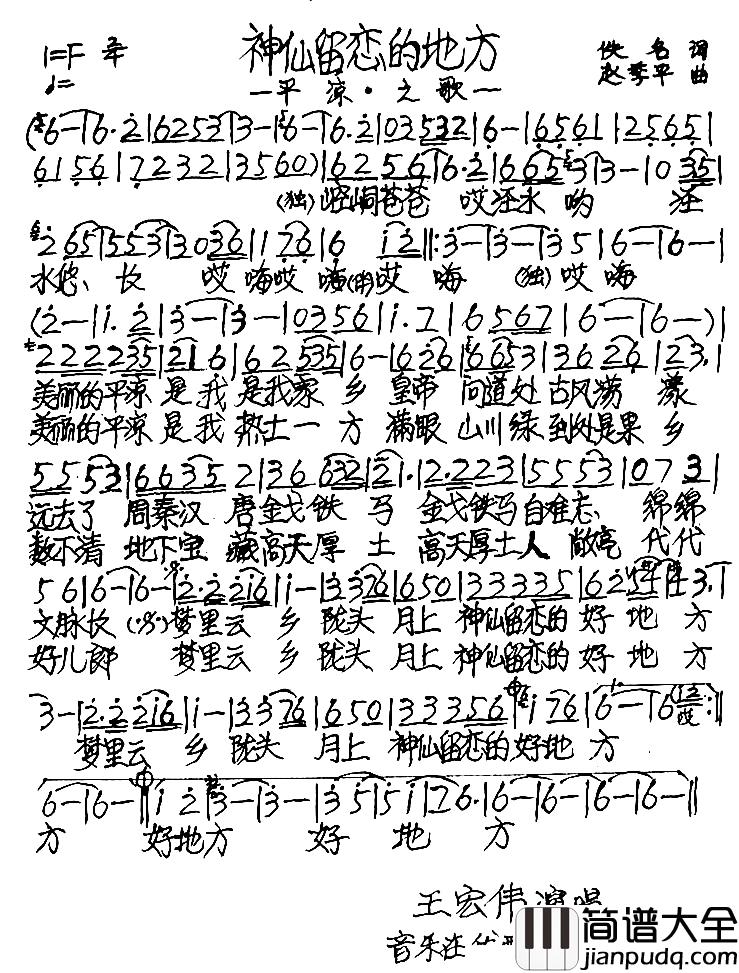 神仙留恋的地方
1=F 2/4
佚名 词
—平凉·之歌—
赵季平 曲
(6—|6·2|6253|3—|6—|6·2|03532|6—|6561|2565|
6156|7232|3560)|6256|6·2|6653|3—|035|
(独)崆峒苍苍 哎泾水 哟 泾
265|553|3036|176|6 i2‖:3—|3—|35|6—|6—|
水悠、长 哎嗨哎 嗨(伴)哎 嗨 (独)哎嗨
(2—|i.2|3—|3—|0356|i.7|6567|6—|6—)|
222235|216|62535|6—|626|6653|3626|23.|
美丽的平凉 是我 是我家 乡 皇帝 问道处 古风荡 漾
美丽的平凉 是我 热土一 方 满眼 山川绿 到处是果 乡
5553|66352|366632|21.|2.223|5553|073|
远去了 周秦汉 唐金戈铁 马 金戈铁马自难忘、 绵绵
数不清 地下宝 藏高天厚 土 高天厚土人 敞亮 代代
56|6—|6—|2.22i6|i—|3376|650|33335|625|3.|
文脉长 梦里云 乡 陇头 月上 神仙留恋的 好 地 方
好儿郎 梦里云 乡 陇头 月上 神仙留恋的 好 地 方
3—|2.22i6|i—|3376|650|33356|i76|6—|6(12):‖
梦里云 乡 陇头 月上 神仙留恋的好地 方
6—|6—‖i2|3—|3—|35|5i|76.|6—|6—|6—|6—‖
方 好地方 好 地 方
王宏伟演唱
音乐在
简谱大全
jianpudq.com